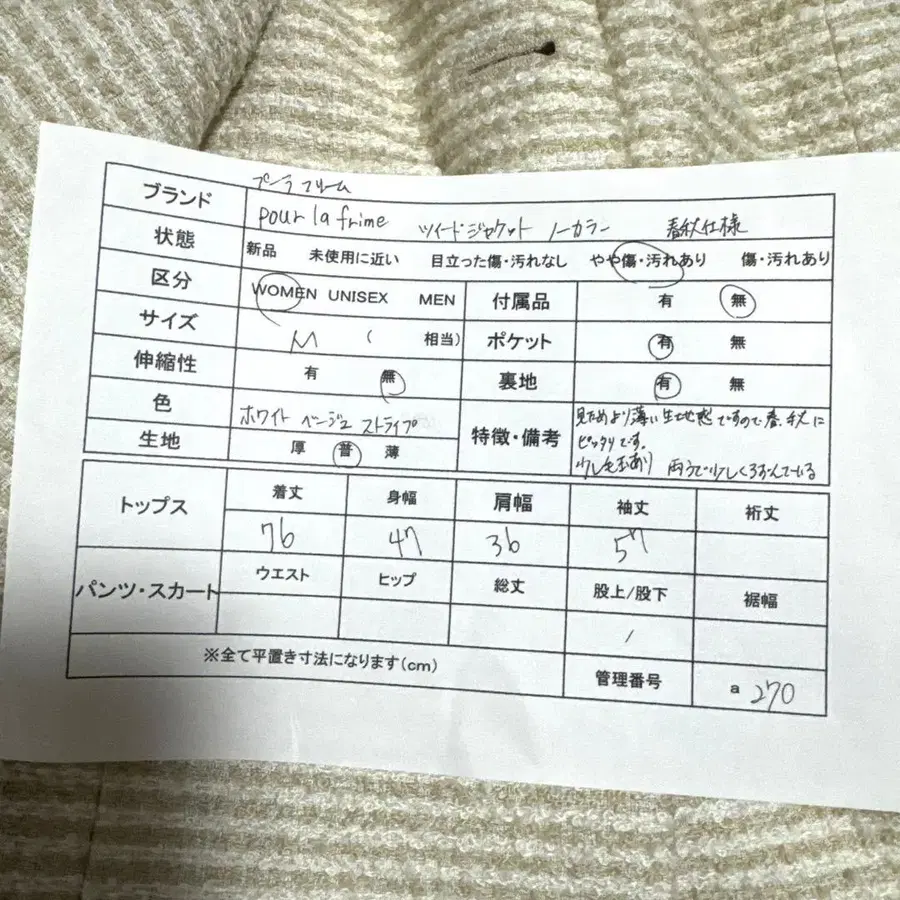 プーラフリーム
ブランド pour la frime ツイードジャケット ノーカラー 春秋仕様
状態 新品 未使用に近い 目立った傷・汚れなし やや傷・汚れあり 傷・汚れあり
区分 WOMEN UNISEX MEN 付属品 有 無
サイズ M ( 相当) ポケット 有 無
伸縮性 有 無 裏地 有 無
色 ホワイト ベージュ ストライプ 特徴・備考 見ためより薄い生地感ですので春、秋に
ピッタリです。
生地 厚 普 薄 少し毛玉あり 両うで少しくろずんでいる
トップス 着丈 身幅 肩幅 袖丈 裄丈
76 47 36 57
パンツ・スカート ウエスト ヒップ 総丈 股上/股下 裾幅
/
※全て平置き寸法になります(cm) 管理番号 a 270